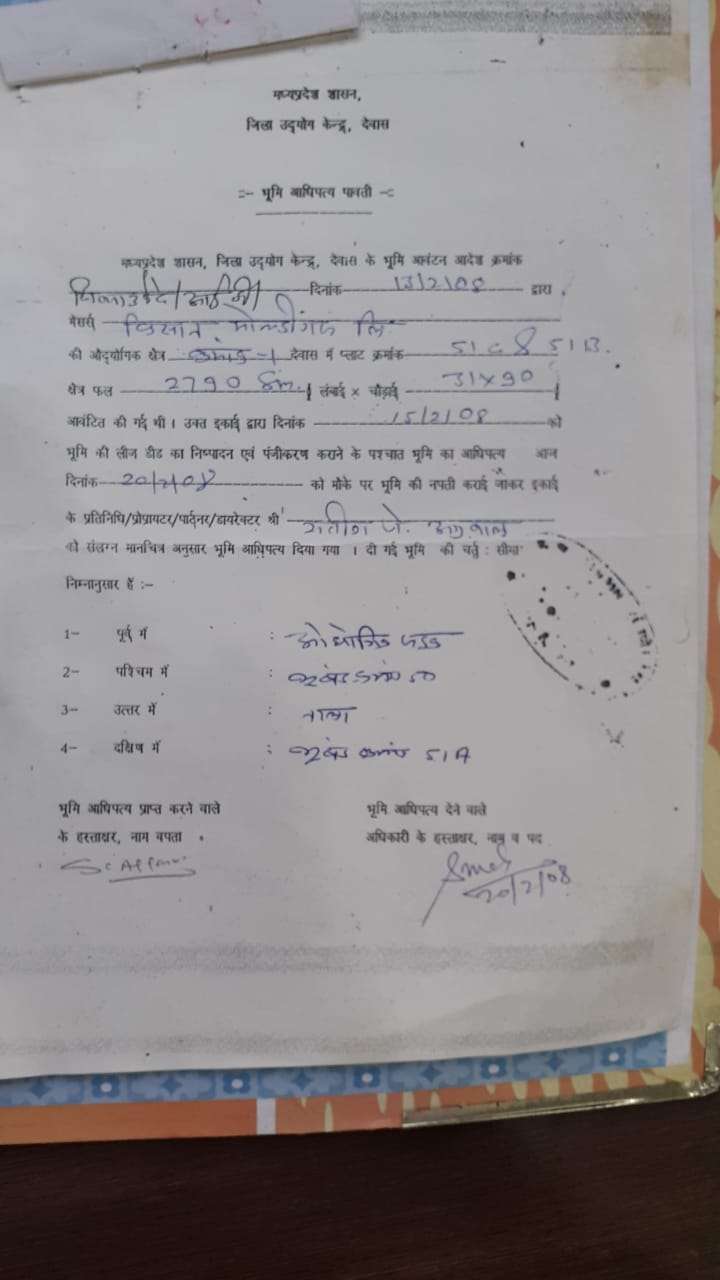 मध्यप्रदेश शासन,
जिला उद्योग केन्द्र, देवास
:- भूमि आधिपत्य पावती -:
मध्यप्रदेश शासन, जिला उद्योग केन्द्र, देवास के भूमि आवंटन आदेश क्रमांक
दिनांक 13/2/08 द्वारा
मेसर्स किसान मोल्डींगस लि.
की औद्योगिक क्षेत्र क्रमांक-1 देवास में प्लाट क्रमांक 51C & 51B.
क्षेत्र फल 2790 लंबाई × चौड़ाई 31×90
आवंटित की गई थी । उक्त इकाई द्वारा दिनांक 15/2/08 को
भूमि की लीज डीड का निष्पादन एवं पंजीकरण कराने के पश्चात भूमि का आधिपत्य आज
दिनांक 20/2/08 को मौके पर भूमि की नपती कराई जाकर इकाई
के प्रतिनिधि/प्रोप्रायटर/पार्टनर/डायरेक्टर श्री सतीश जे. अग्रवाल
को संलग्न मानचित्र अनुसार भूमि आधिपत्य दिया गया । दी गई भूमि की चर्तु: सीमा
निम्नानुसार हैं :-
1- पूर्व में : औद्योगिक सडक
2- पश्चिम में : भूखंड क्रमांक 50
3- उत्तर में : नाला
4- दक्षिण में : भूखंड क्रमांक 51A
भूमि आधिपत्य प्राप्त करने वाले
के हस्ताक्षर, नाम वपता
भूमि आधिपत्य देने वाले
अधिकारी के हस्ताक्षर, नाम व पद
20/2/08